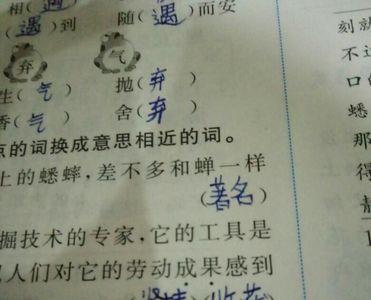 相(遇) 随(遇)而安 刻就
(遇)到 不近
弃 气 口的
生(气) 抛(弃) 蟋
香(气) 舍(弃) 那
点的词换成意思相近的词。 得
上的蟋蟀,差不多和蝉一样
(著名)
掘技术的专家,它的工具是
人们对它的劳动成果感到